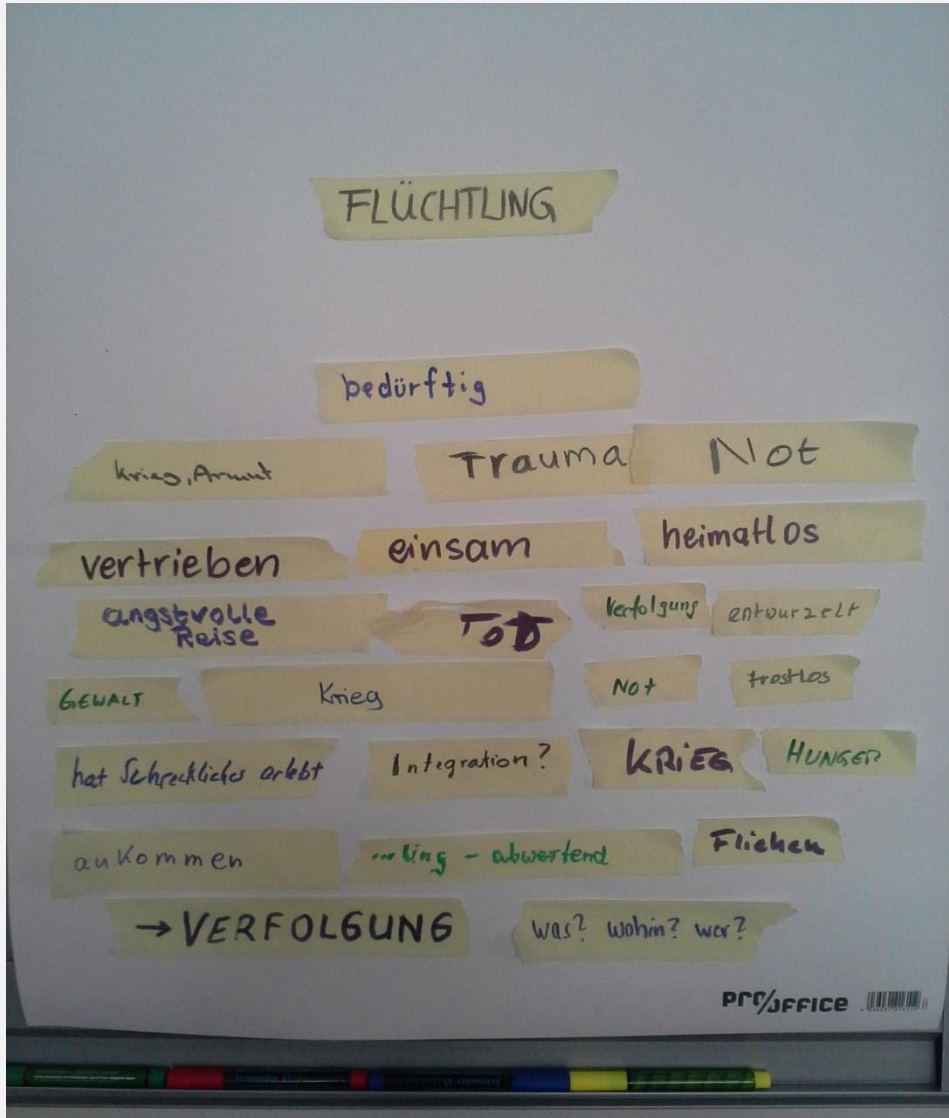 FLÜCHTLING
bedürftig
Krieg, Armut
Trauma
Not
vertrieben
einsam
heimatlos
angstvolle
Reise
TOD
Verfolgung
entwurzelt
GEWALT
Krieg
Not
trostlos
hat Schreckliches erlebt
Integration?
KRiEG
HUNGER
ankommen
...ling - abwertend
Fliehen
→ VERFOLGUNG
was? wohin? wer?
PRO/OFFICE